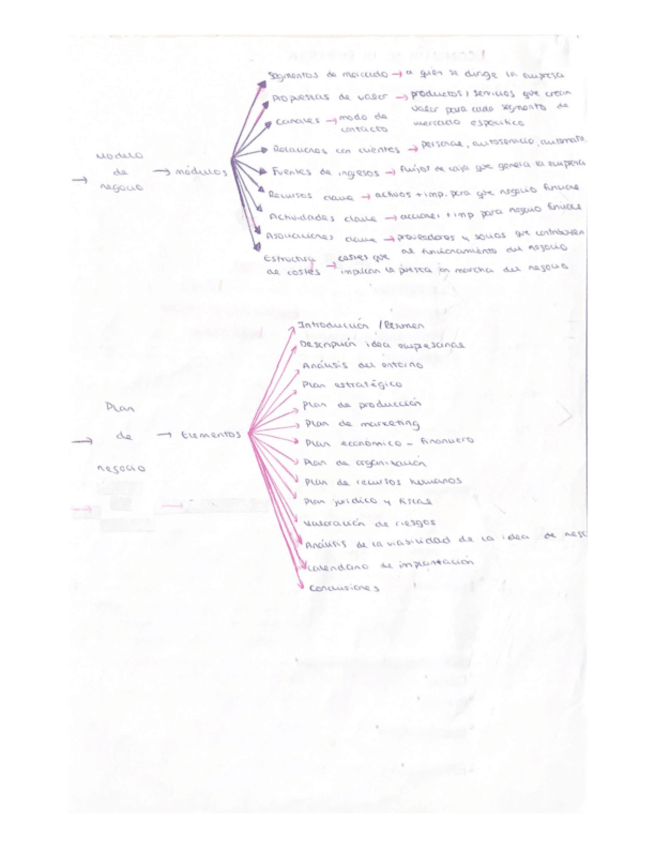 Segmentos de mercado → a quién se dirige la empresa
Propuestas de valor → productos / servicios que crean
valor para cada segmento de
mercado específico
Canales → modo de
contacto
Relaciones con clientes → personal, autoservicio, automát.
Modelo
de
negocio
→ módulos
Fuentes de ingresos → flujos de caja que genera la empresa
Recursos clave → activos + imp. para que negocio funcione
Actividades clave → acciones + imp para negocio funcione
Asociaciones clave → proveedores y socios que contribuyen
al funcionamiento del negocio
Estructura
de costes → costes que
implican la puesta en marcha del negocio
Plan
de
negocio
→ Elementos
Introducción / Resumen
Descripción idea empresarial
Análisis del entorno
Plan estratégico
Plan de producción
Plan de marketing
Plan económico - financiero
Plan de organización
Plan de recursos humanos
Plan jurídico y fiscal
Valoración de riesgos
Análisis de la viabilidad de la idea de nego
Calendario de implantación
Conclusiones